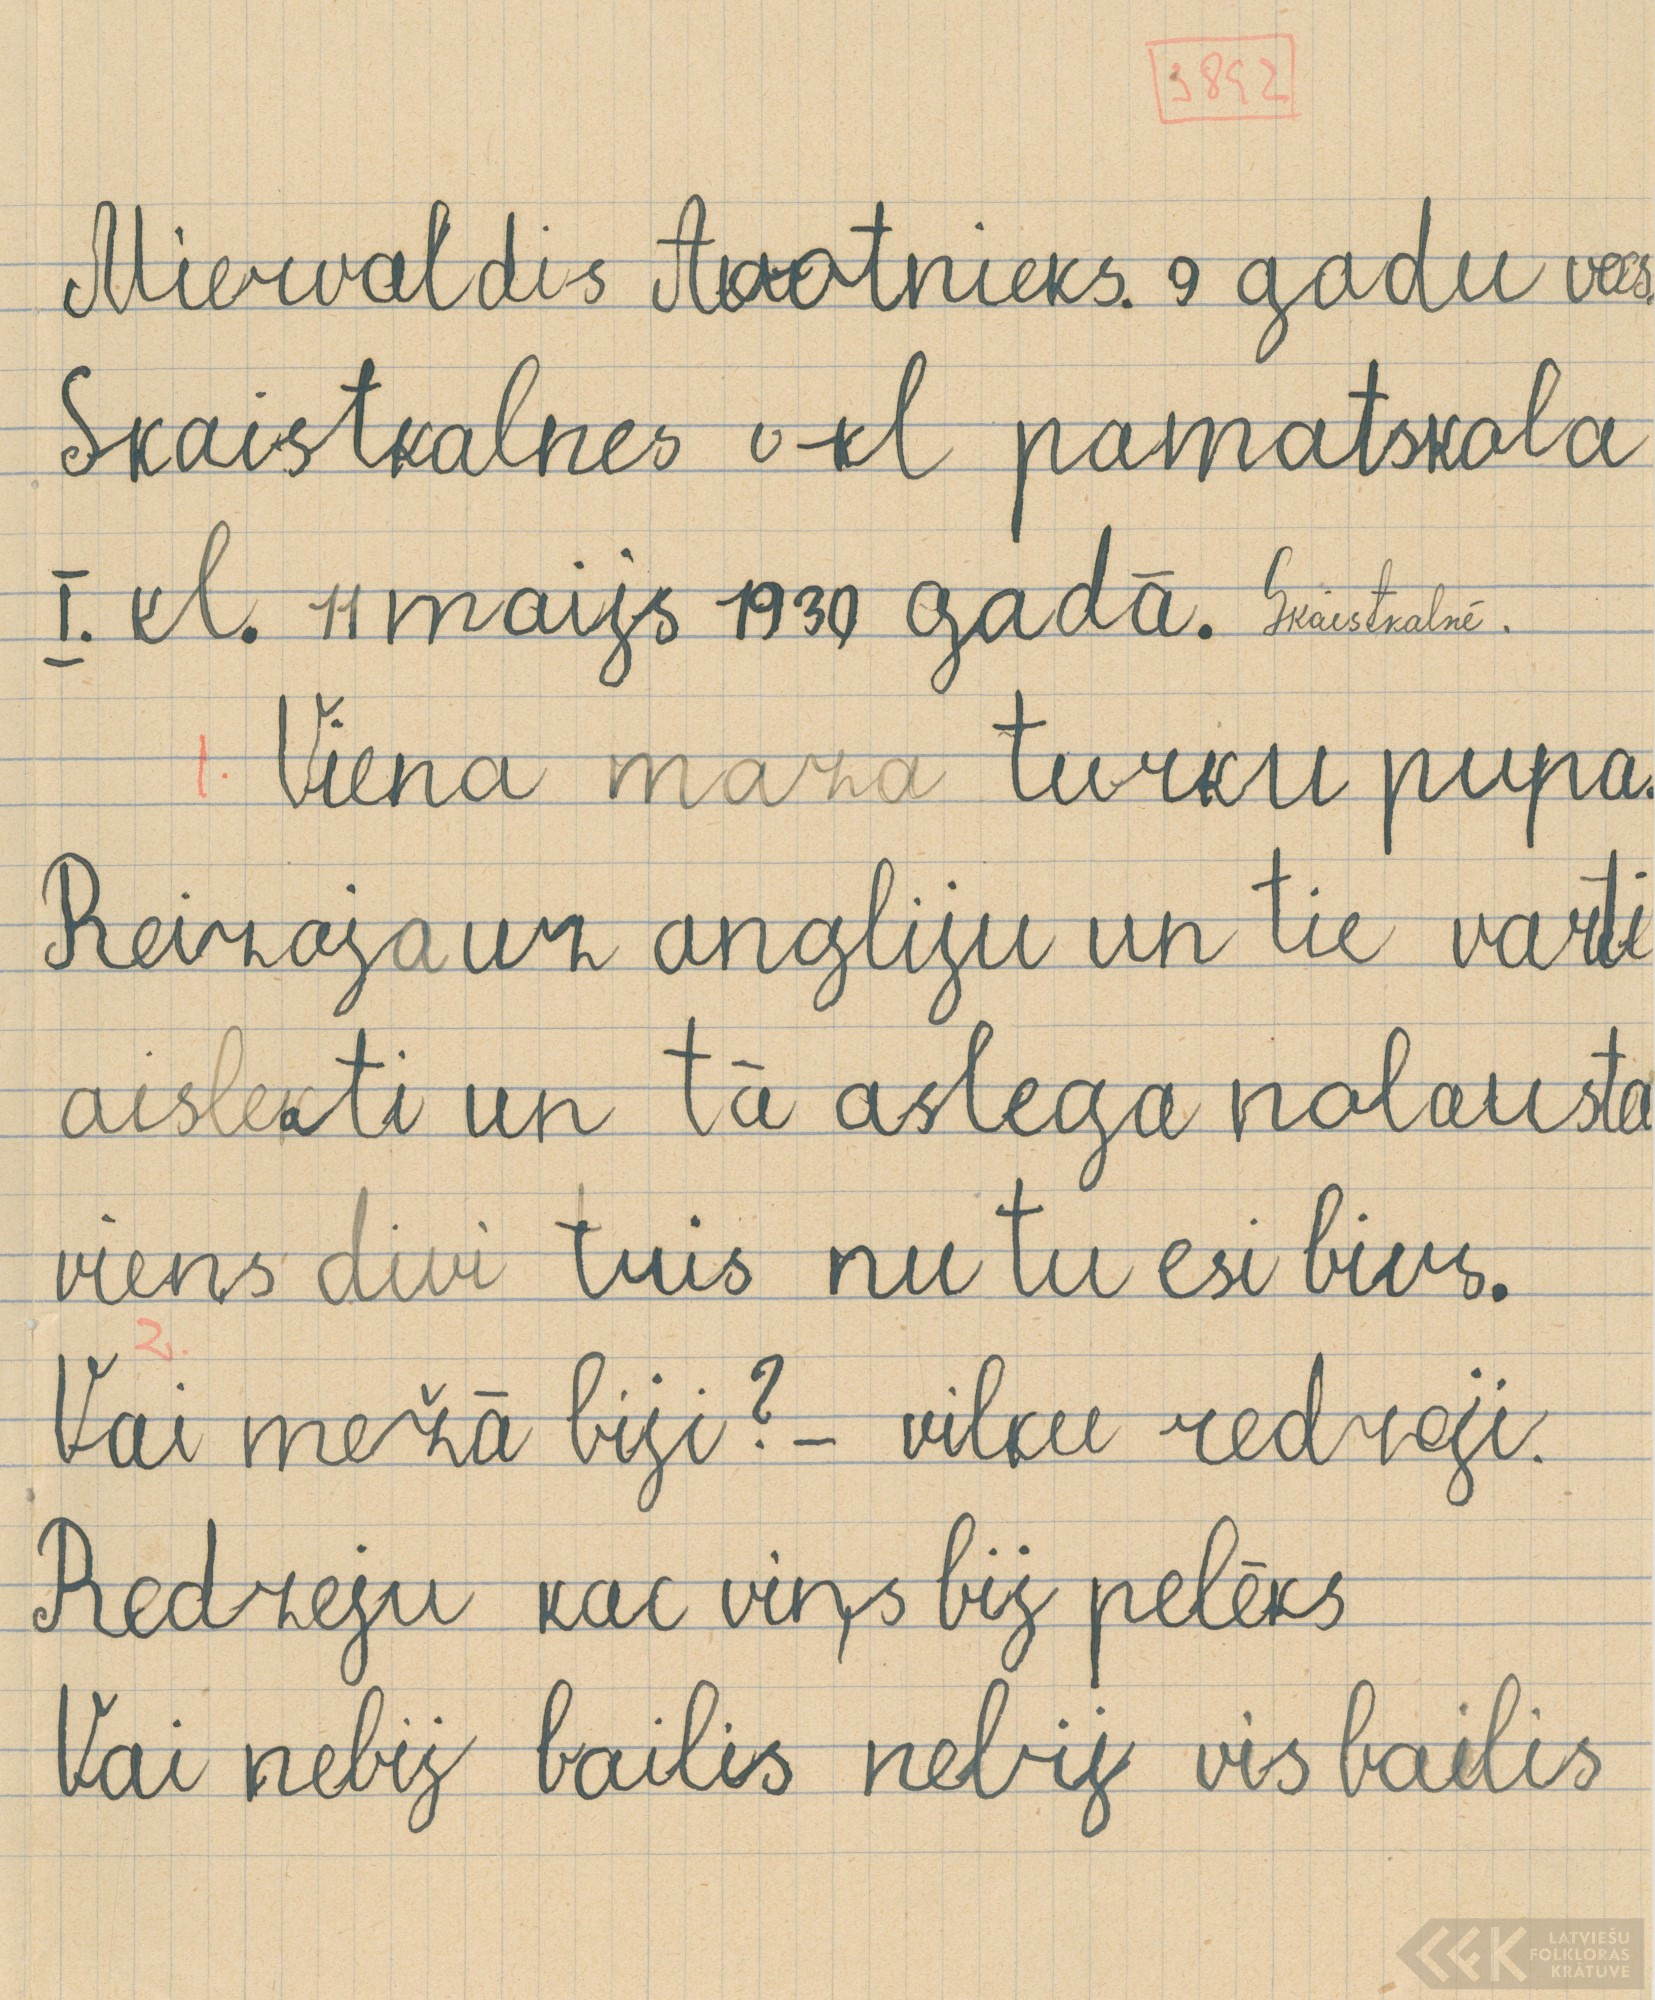 3892
Miervaldis Arotnieks. 9 gadu vecs.
Skaistkalnes 6-kl pamatskola
I. kl. 11 maijs 1930 gadā. Skaistkalnē.
1. Viena maza turku pupa.
Reizajauz angliju un tie varti
aislekti un tā aslega nolausta
viens divi truis nu tu esi bivs.
2.
Vai mežā biji? – vilku redzeji.
Redzeju kac viņs bij pelēks
Vai nebij bailis nebij vis bailis
LATVIEŠU
FOLKLORAS
KRĀTUVE